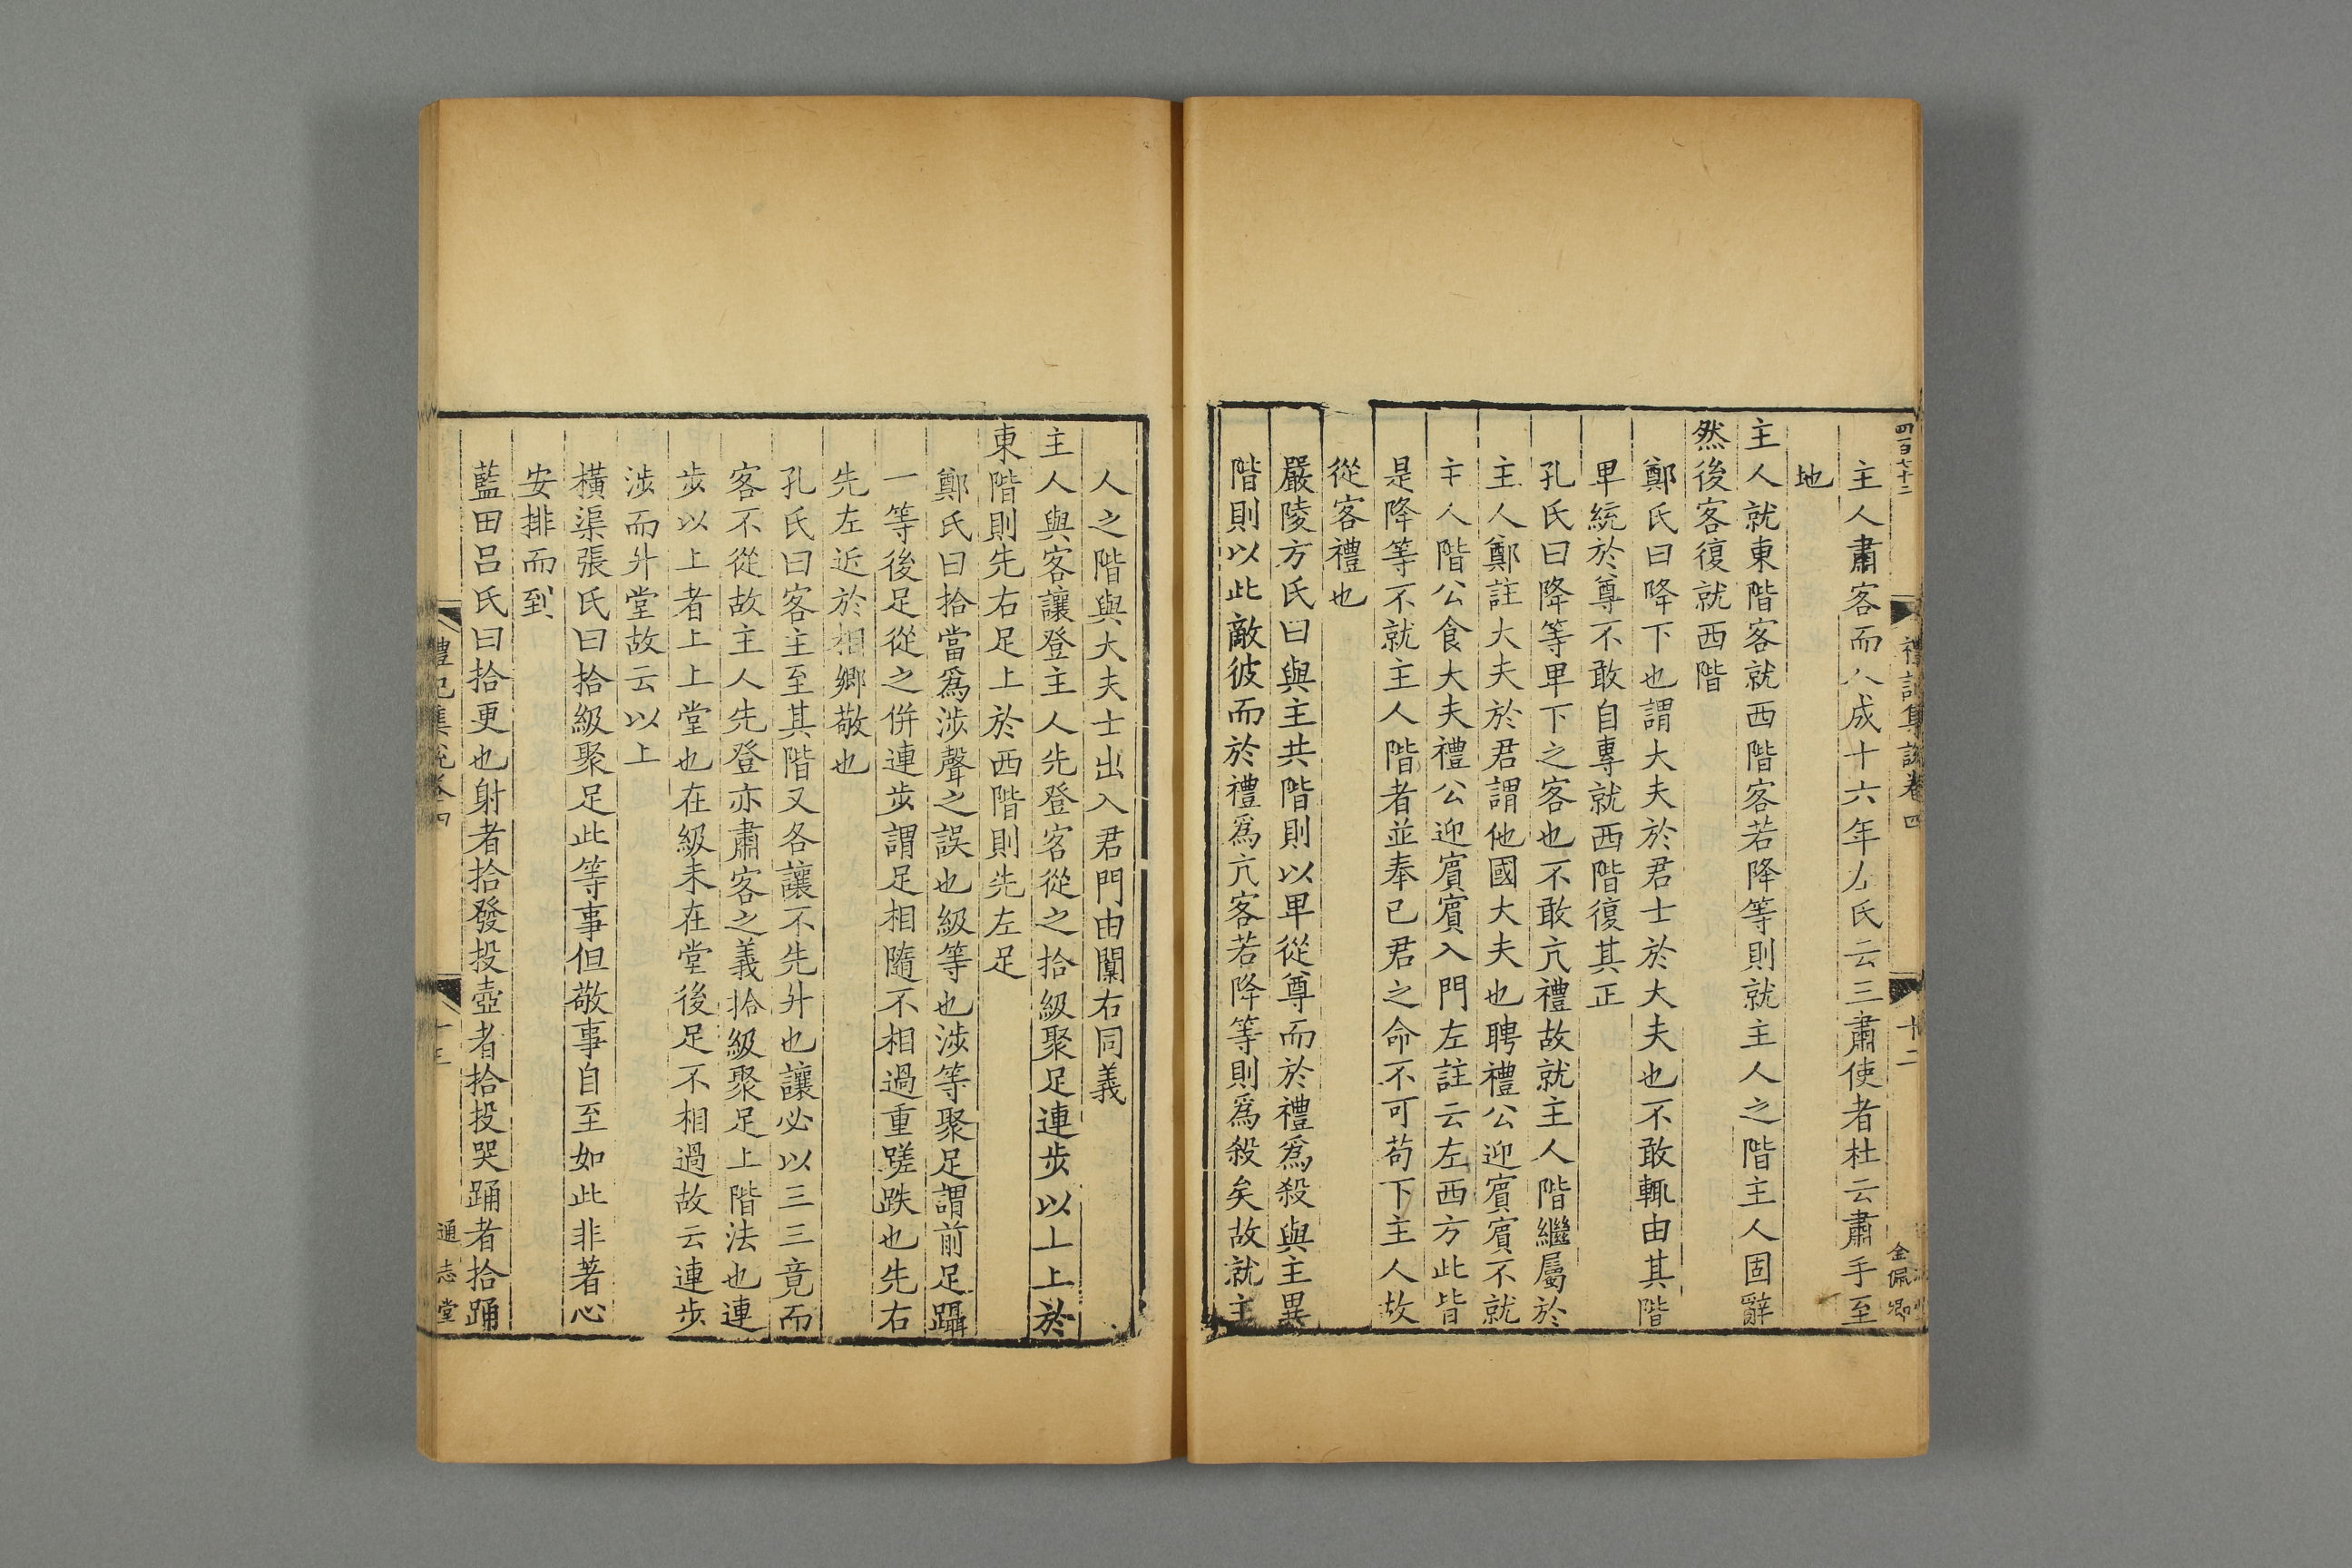 四百七十二
禮記集說卷四
十二
金佩卿
主人肅客而入成十六年左氏云三肅使者杜云肅手至
地
主人就東階客就西階客若降等則就主人之階主人固辭
然後客復就西階
鄭氏曰降下也謂大夫於君士於大夫也不敢輒由其階
卑統於尊不敢自專就西階復其正
孔氏曰降等卑下之客也不敢亢禮故就主人階繼屬於
主人鄭註大夫於君謂他國大夫也聘禮公迎賓賓不就
主人階公食大夫禮公迎賓賓入門左註云左西方此皆
是降等不就主人階者並奉己君之命不可苟下主人故
從客禮也
嚴陵方氏曰與主共階則以卑從尊而於禮爲殺與主異
階則以此敵彼而於禮爲亢客若降等則爲殺矣故就主
人之階與大夫士出入君門由闑右同義
主人與客讓登主人先登客從之拾級聚足連步以上上於
東階則先右足上於西階則先左足
鄭氏曰拾當爲涉聲之誤也級等也涉等聚足謂前足躡
一等後足從之併連步謂足相隨不相過重蹉跌也先右
先左近於相鄉敬也
孔氏曰客主至其階又各讓不先升也讓必以三三竟而
客不從故主人先登亦肅客之義拾級聚足上階法也連
步以上者上上堂也在級未在堂後足不相過故云連步
涉而升堂故云以上
橫渠張氏曰拾級聚足此等事但敬事自至如此非著心
安排而到
藍田呂氏曰拾更也射者拾發投壺者拾投哭踊者拾踊
禮記集說卷四
十三
通志堂